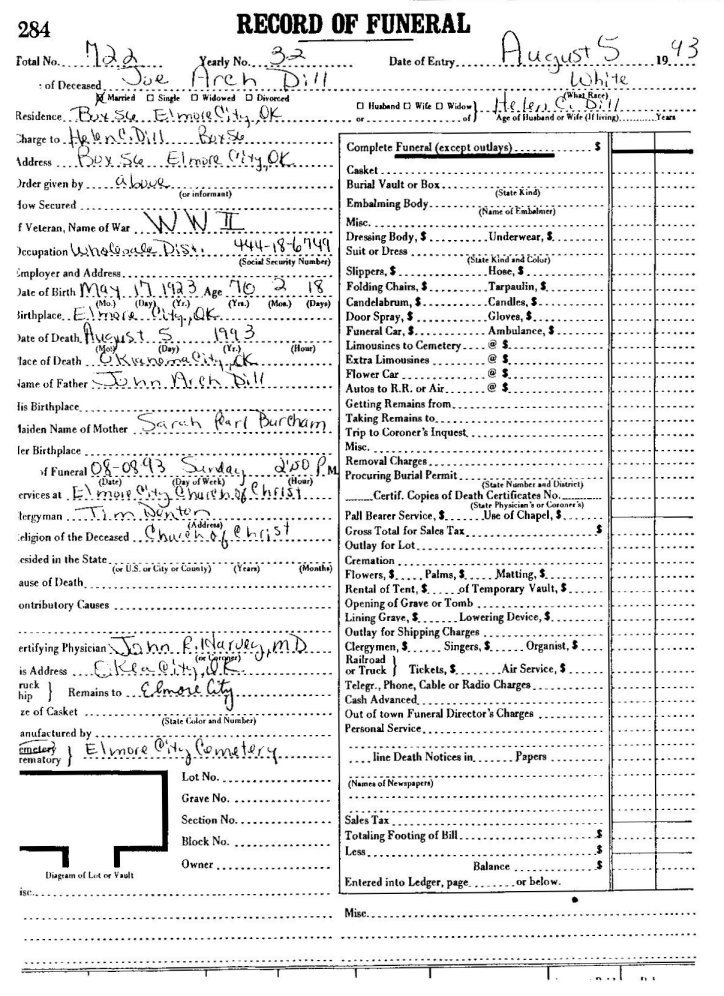 284 RECORD OF FUNERAL
Total No. 722 Yearly No. 32 Date of Entry August 5 1993
: of Deceased Joe Arch Dill White
Married □ Single □ Widowed □ Divorced (What Race)
□ Husband □ Wife □ Widow } Helen C. Dill
Residence Box 56 Elmore City, OK or of Age of Husband or Wife (If living) Years
Charge to Helen C. Dill Box 56
Address Box 56 Elmore City, OK
Order given by above
(or informant)
How Secured
f Veteran, Name of War WW II
Occupation Wholesale Dist. 444-18-6749
(Social Security Number)
Employer and Address
Date of Birth May 17 1923 Age 70 2 18
(Mo.) (Day) (Yr.) (Yrs.) (Mos.) (Days)
Birthplace Elmore City, OK
Date of Death August 5 1993
(Mo.) (Day) (Yr.) (Hour)
lace of Death Oklahoma City, OK
Name of Father John Arch Dill
His Birthplace
Maiden Name of Mother Sarah Pearl Burcham
Her Birthplace
of Funeral 08-08-93 Sunday 2:00 P M.
(Date) (Day of Week) (Hour)
ervices at Elmore City Church of Christ
lergyman Tim Denton
(Address)
eligion of the Deceased Church of Christ
esided in the State
(or U.S. or City or County) (Years) (Months)
ause of Death
ontributory Causes
ertifying Physician John R. Harvey, MD
(or Coroner)
is Address Okla City, OK
ruck
hip } Remains to Elmore City
ze of Casket
(State Color and Number)
anufactured by
emetery
rematory } Elmore City Cemetery
Lot No.
Grave No.
Section No.
Block No.
Owner
Diagram of Lot or Vault
isc.
Complete Funeral (except outlays) $
Casket
Burial Vault or Box
(State Kind)
Embalming Body
(Name of Embalmer)
Misc.
Dressing Body, $ Underwear, $
Suit or Dress
(State Kind and Color)
Slippers, $ Hose, $
Folding Chairs, $ Tarpaulin, $
Candelabrum, $ Candles, $
Door Spray, $ Gloves, $
Funeral Car, $ Ambulance, $
Limousines to Cemetery @ $
Extra Limousines @ $
Flower Car @ $
Autos to R.R. or Air @ $
Getting Remains from
Taking Remains to
Trip to Coroner's Inquest
Misc.
Removal Charges
Procuring Burial Permit
(State Number and District)
Certif. Copies of Death Certificates No.
(State Physician's or Coroner's)
Pall Bearer Service, $ Use of Chapel, $
Gross Total for Sales Tax $
Outlay for Lot
Cremation
Flowers, $ Palms, $ Matting, $
Rental of Tent, $ of Temporary Vault, $
Opening of Grave or Tomb
Lining Grave, $ Lowering Device, $
Outlay for Shipping Charges
Clergymen, $ Singers, $ Organist, $
Railroad
or Truck } Tickets, $ Air Service, $
Telegr., Phone, Cable or Radio Charges
Cash Advanced
Out of town Funeral Director's Charges
Personal Service
line Death Notices in Papers
(Names of Newspapers)
Sales Tax
Totaling Footing of Bill $
Less $
Balance $
Entered into Ledger, page or below.
Misc.